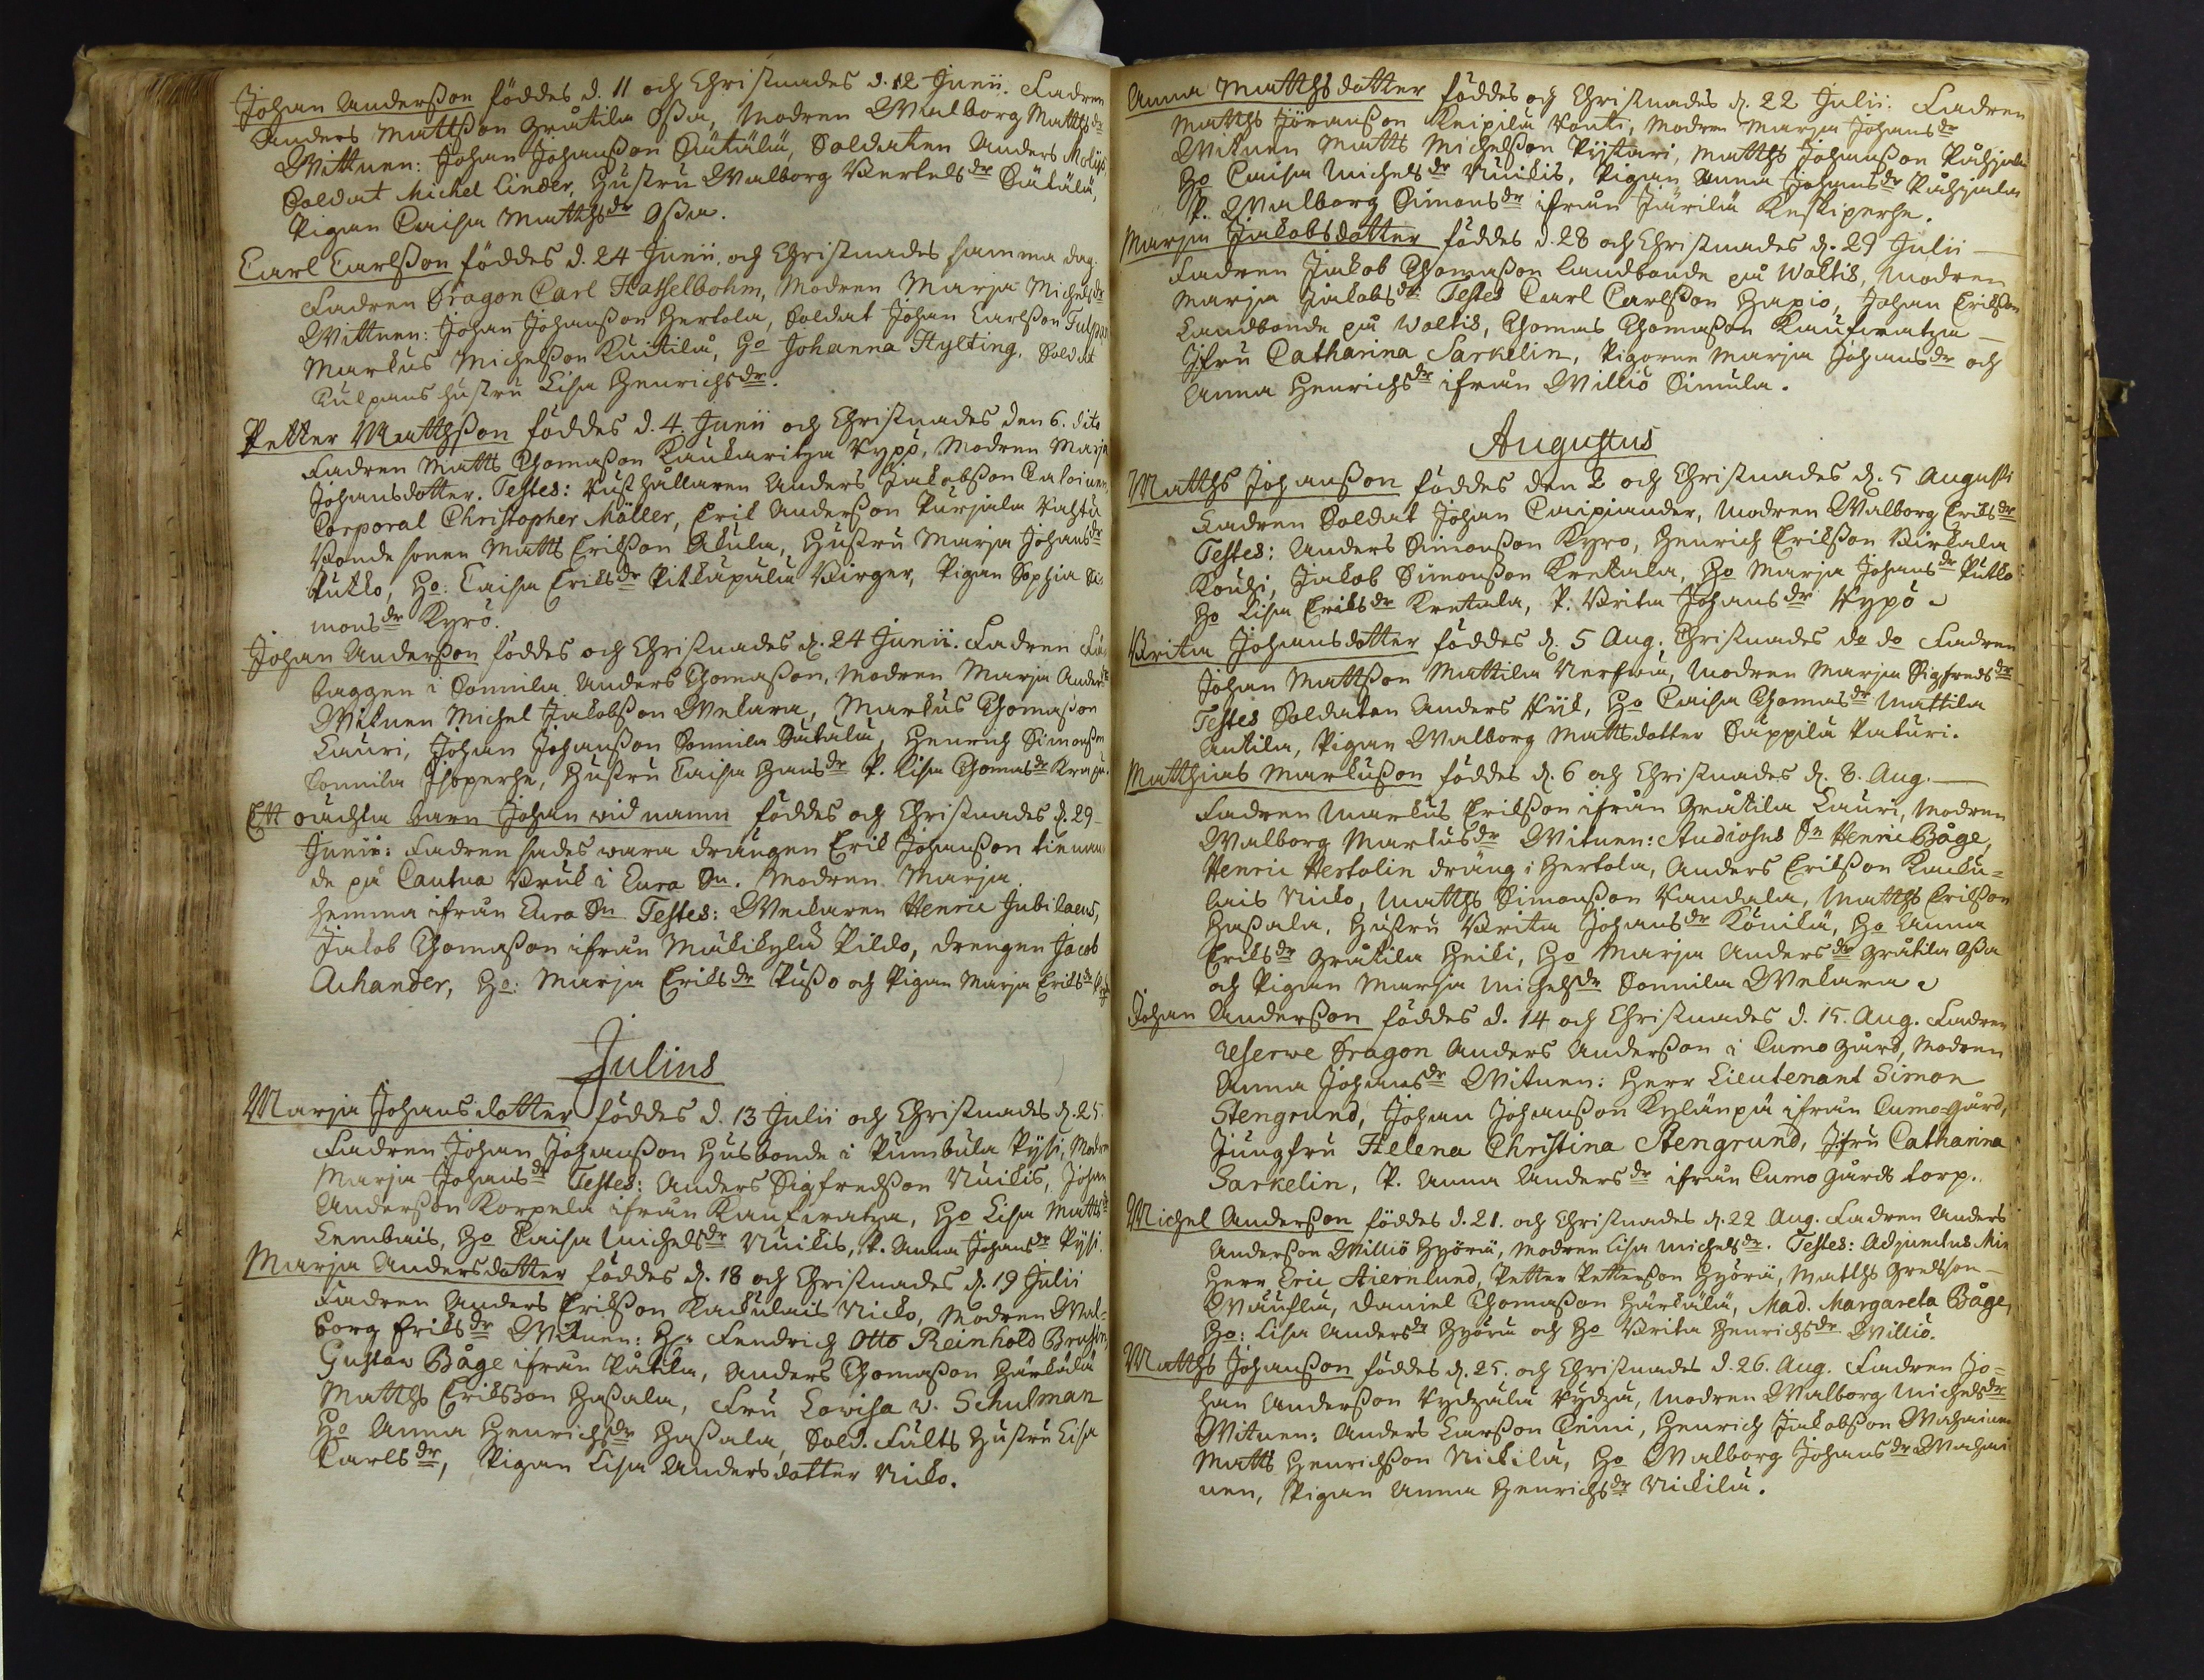 Johan Anderßon föddes d. 11 och Christnades d. 12 Junii. Fadren
Anders Mattßon Gråtila Oßa, Modren Walborg Matths dr
Wittnen: Johan Johanßon Säkälä, Soldaten Anders
Soldat Michel Linder, Hustru Walborg Bertels dr Säkälä,
Pigan Caisa Matths dr Oßa.
Carl Carlßon föddes d. 24 Junii. och Christnades samma dag.
Fadren Dragon Carl Hasselbohm, Modren Marja Michels dr
Wittnen: Johan Johanßon Hertola, Soldat Johan Carlßon
Markus Michelßon Kuitila, Ho Johanna Hylting, Soldat
Kulpans hustru Lisa Henrichs dr.
Petter Matthßon föddes d. 4. Junii och Christnades den 6. dito
Fadren Matts Thomaßon Kaukaritza Sypö, Modren Marja
Johansdotter. Testes: Rusthållaren Anders Jakobßon
Corporal Christopher Möller, Erik Anderßon Purjala Rahtu
Bonde sonen Matts Erikßon Akula, Hustru Marja Johans dr
Putko, Ho: Caisa Eriks dr Pitkäpälä Birger, Pigan Sophia Si-
mons dr Kyrö.
Johan Anderßon föddes och Christnades d. 24 Junii. Fadren
baggen i Sonnila Anders Thomaßon, Modren Marja Anders dr
Witnen Michel Jakobßon Wekara, Markus Thomaßon
Lauri, Johan Johanßon Sonnila Säkälä, Henrich Simonßon
Sonnila Isoperhe, Hustru Caisa Hans dr P. Lisa Thomas dr
Ett oächta barn Johan vid namn föddes och Christnades d. 29
Junii: Fadren sades wara drängen Erik Johanßon tienan-
de på Cautua Bruk i Eura Sn. Modren Marja
hemma ifrån Eura Sn Testes: Wekaren Henric Jubilaeus,
Jakob Thomaßon ifrån Mäkikylä Pildo, drengen Jacob
Achander, Ho: Marja Eriks dr Pußo och Pigan Marja Eriks dr
Julius
Marja Johansdotter föddes d. 13 Julii och Christnades d. 25.
Fadren Johan Johanßon Husbonde i Pumbula Pysi, Modren
Marja Johans dr Testes: Anders Sigfredßon Nuikis, Johan
Anderßon Korpela ifrån Kaukiratza, Ho Lisa Matts dr
Lembais, Ho Caisa Michels dr Nuikis, P. Anna Johans dr Pysi.
Marja Andersdotter föddes d. 18 och Christnades d. 19 Julii
Fadren Anders Erikßon Kackulais Nicko, Modren Wal-
borg Eriks dr Witnen: Hr Fendrich Otto Reinhold
Gustav Båge ifrån Påtila, Anders Thomaßon Härkälä
Matths Erikßon Haßala, Fru Lovisa v. Schulman
Ho Anna Henrichs dr Haßala, Sold. Fälts Hustru Lisa
Carls dr, Pigan Lisa Andersdotter Nicko.
Anna Matthsdotter föddes och Christnades d. 22 Julii. Fadren
Matths Jöranßon Keipilä Kouti, Modren Marja Johans dr
Witnen Matts Michelßon Pijtari, Matths Johanßon Påhjala
Ho Caisa Michels dr Nuikis, Pigan Anna Johans dr Påhjala
P. Walborg Simons dr ifrån Järilä Keskiperhe.
Marja Jakobsdotter föddes d. 28 och Christnades d. 29 Julii
Fadren Jakob Thomaßon Landbonde på Waltis, Modren
Marja Jakobs dr Testes Carl Carlßon Hapio, Johan Erikßon
Landbonde på Waltis, Thomas Thomaßon Kaukiratza
Jfru Catharina Sarkelin, Pigorne Marja Johans dr och
Anna Henrichs dr ifrån Williö Simula.
Augustus
Matths Johanßon föddes den 2 och Christnades d. 5 Augusti
Fadren Soldat Johan Caipiander, Modren Walborg Eriks dr
Testes: Anders Simonßon Kyro, Henrich Erikßon Birkala
Kouhi, Jakob Simonßon Krekala, Ho Marja Johans dr Putko
Ho Lisa Eriks dr Krekala, P. Brita Johans dr Sypö
Brita Johansdotter föddes d. 5 Aug. Christnades do do Fadren
Johan Mattßon Mattila Uusikna, Modren Marja Sigfreds dr
Testes Soldaten Anders Kijl, Ho Caisa Thomas dr Mattila
Antila, Pigan Walborg Mattsdotter Säppilä Paturi.
Matthias Markußon föddes d. 6 och Christnades d. 8. Aug.
Fadren Markus Erikßon ifrån Gråtila Lauri, Modren
Walborg Markus dr Witnen: Studiosus Dn Henric Båge,
Henric Hertolin dräng i Hertola, Anders Erikßon Kacku-
lais Nicko, Matths Simonßon Kandala, Matths Erikßon
Haßala, Hustru Brita Johans dr Könikä, Ho Anna
Eriks dr Gråtila Heiki, Ho Marja Anders dr Gråtila Oßa
och Pigan Marja Michels dr Sonnila Wekara
Johan Anderßon föddes d. 14 och Christnades d. 15. Aug. Fadren
Reserwe Dragon Anders Anderßon i Cumo gård, Modren
Anna Johans dr Witnen: Herr Lieutenant Simon
Stengrund, Johan Johanßon Kylänpä ifrån Cumo-gård,
Jungfru Helena Christina Stengrund, Jfru Catharina
Sarkelin, P. Anna Anders dr ifrån Cumo gårds torp.
Michel Anderßon föddes d. 21. och Christnades d. 22 Aug. Fadren Anders
Anderßon Williö Hyörä, Modren Lisa Michels dr. Testes: Adjunctus Min
Herr Eric Stiernlund, Petter Petterßon Hyörä, Matths Gretsson
Daniel Thomaßon Härkälä, Mad. Margareta Båge,
Ho: Lisa Anders dr Hyörä och Ho Brita Henrichs dr Williö.
Matths Johanßon föddes d. 25. och Christnades d. 26. Aug. Fadren Jo-
han Anderßon Rydzälä Rydzä, Modren Walborg Michels dr
Witnen: Anders Larßon Peimi, Henrich Jakobßon Wahainen
Matts Henrichßon Nickilä, Ho Walborg Johans dr Wahai
nen, Pigan Anna Henrichs dr Nickilä.